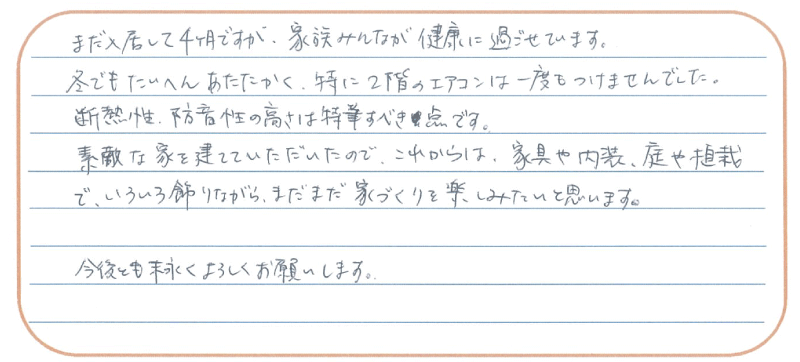 まだ入居して4ヶ月ですが、家族みんなが健康に過ごせています。
冬でもたいへんあたたかく、特に2階のエアコンは一度もつけませんでした。
断熱性、防音性の高さは特筆すべき点です。
素敵な家を建てていただいたので、これからは、家具や内装、庭や植栽
で、いろいろ飾りながら、まだまだ家づくりを楽しみたいと思います。
今後とも末永くよろしくお願いします。